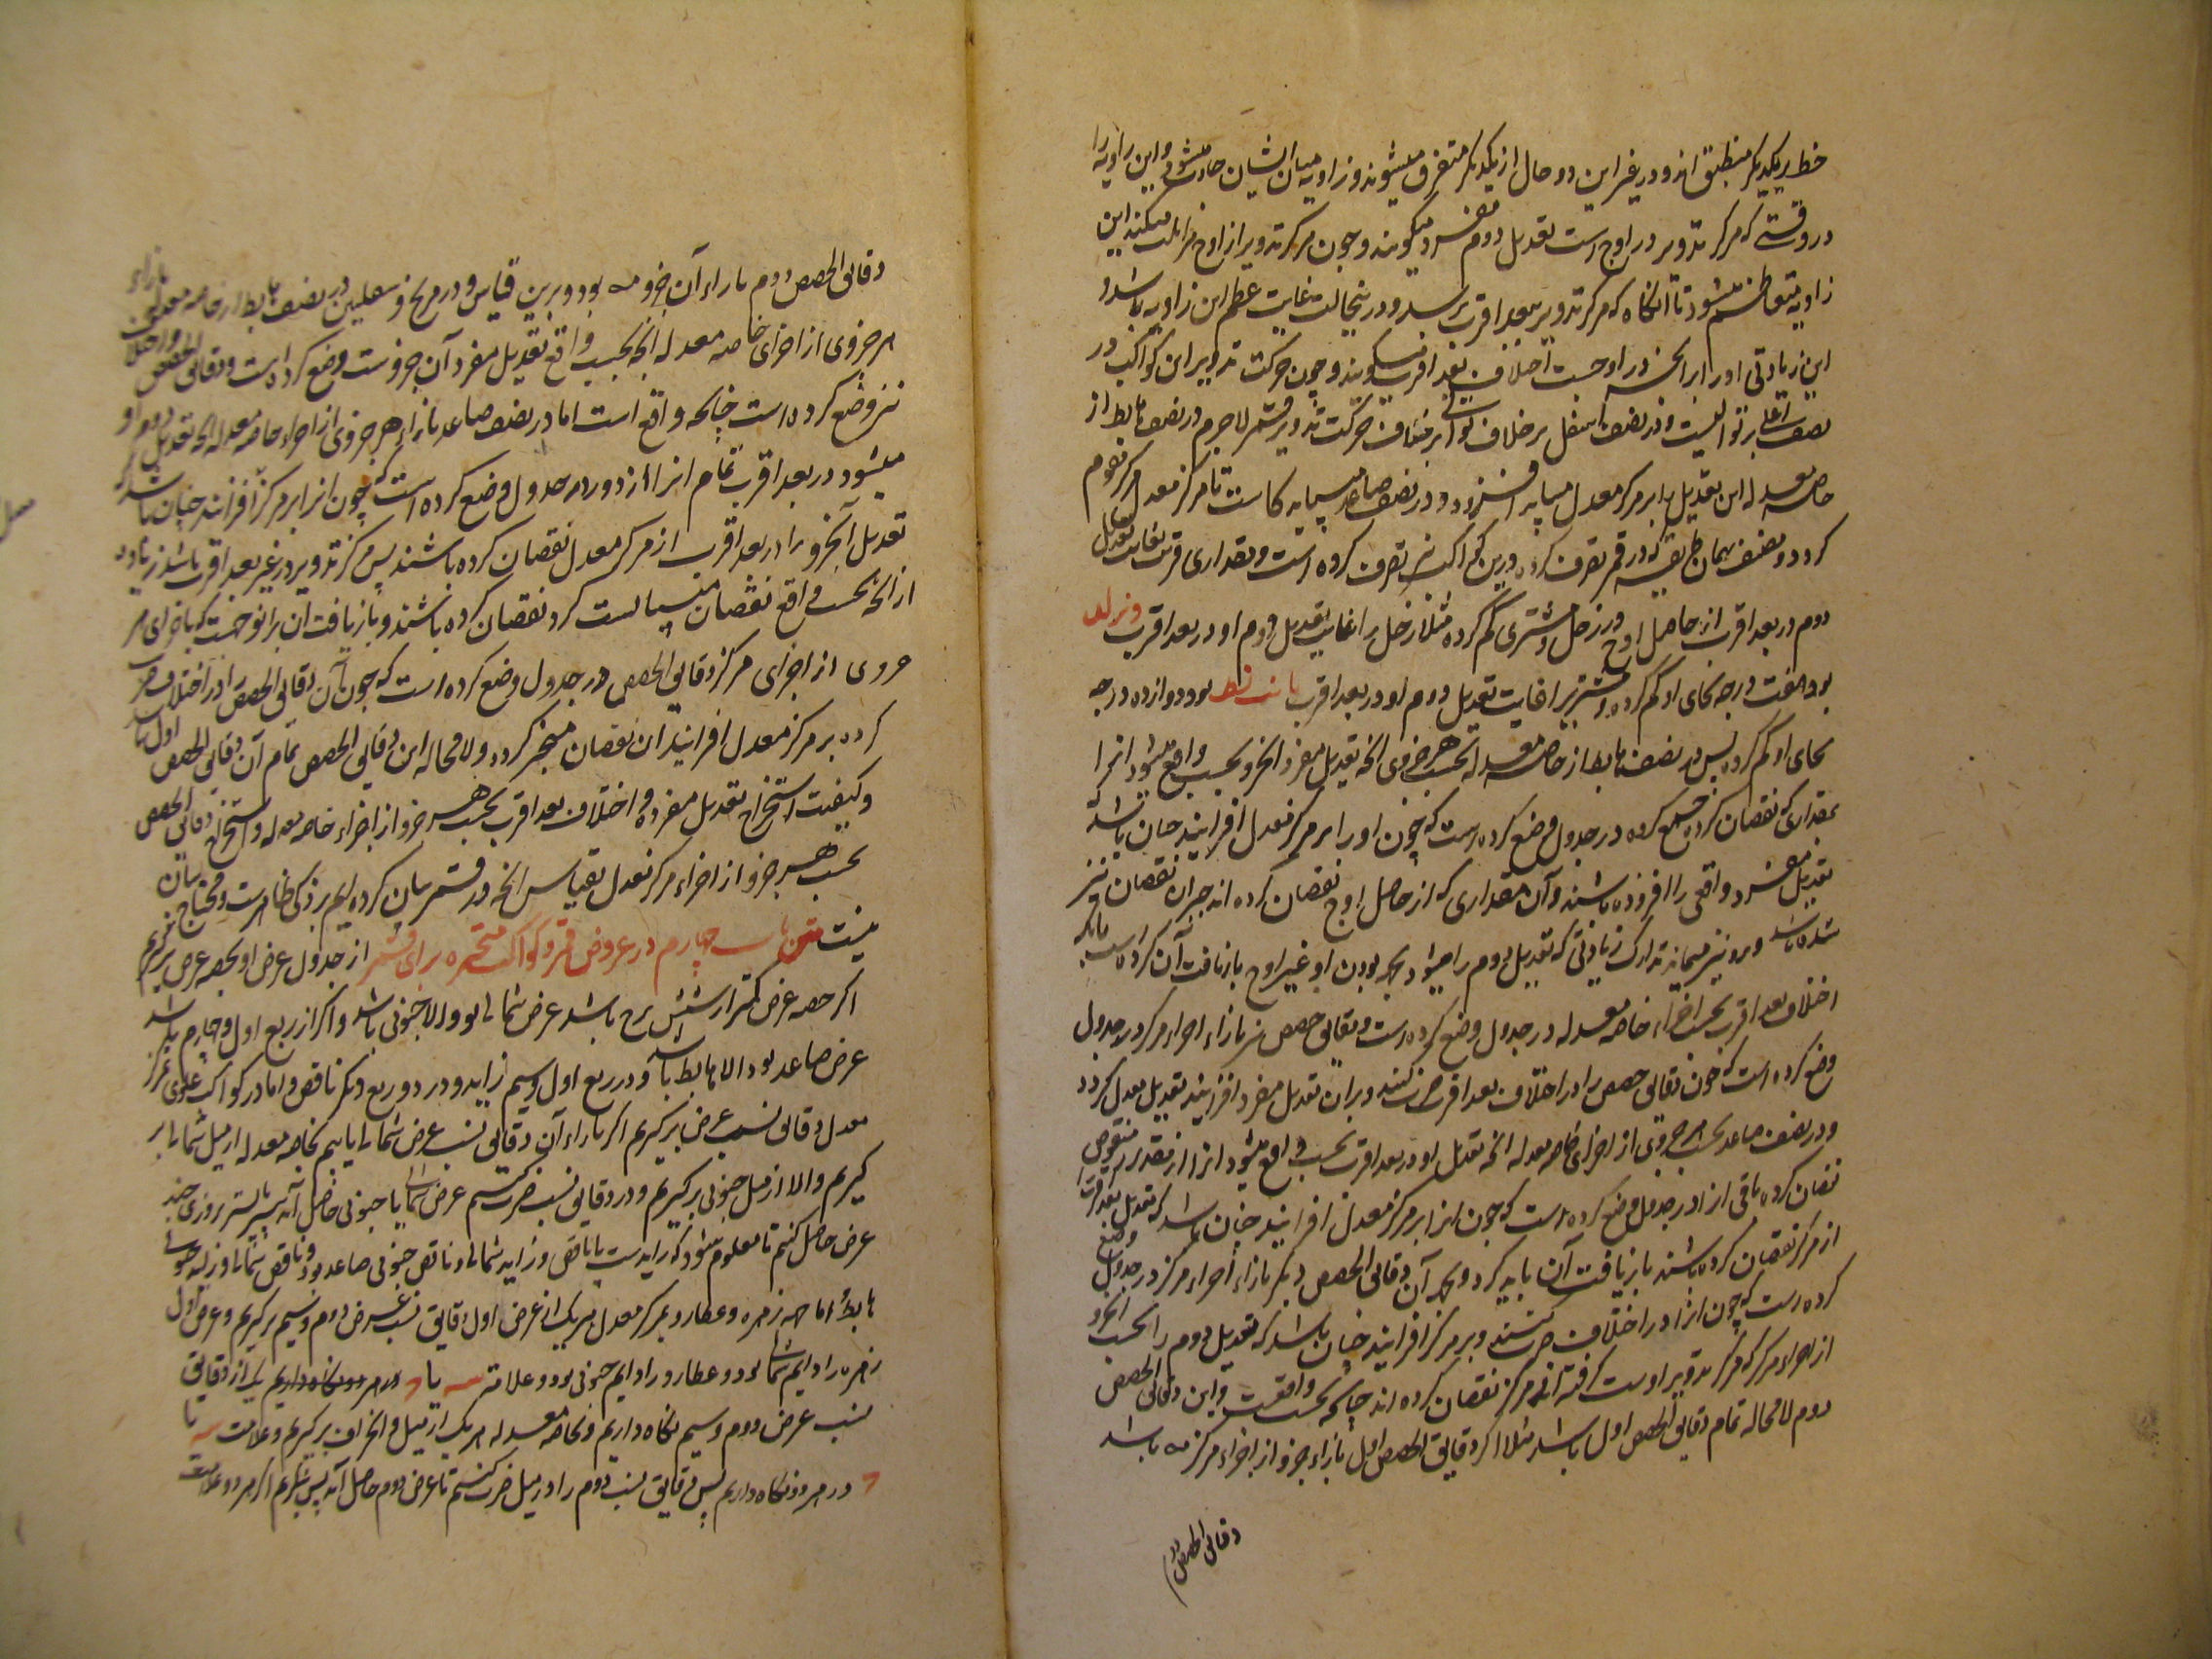 خط بر یکدیگر منطبق اند و در غیر این دو حال از یکدیگر متفرق میشوند و زاویه میان ایشان حادث میشود و این زاویه را
در وقتی که مرکز تدویر در اوج است تعدیل دوم مفرد میکویند و چون مرکز تدویر از اوج مزایلت میکند این
زاویه متعاظم میشود تا آنکاه که مرکز تدویر ببعد اقرب برسد و در ینحالت غایت عظم این زاویه باشد و
این زیادتی او را بر آنچه در اوجست اختلاف بعد اقرب میکویند و چون حرکت تدویر این کواکب در
نصف اعلی بر توالیست و در نصف اسفل بر خلاف توالی بر خلاف حرکت تدویر قمر لاجرم در نصف هابط از
خاصه معدله این تعدیل را بر مرکز معدل میباید افزود و در نصف صاعد میباید کاست تا مرکز معدل مرکز مقوم
کردد و مصنف بهمان طریقه که در قمر تصرف کرده درین کواکب نیز تصرف کرده است و مقداری قریب بغایت تعدیل
دوم در بعد اقرب از حاصل اوج در زحل و مشتری کم کرده مثلا زحل را غایت تعدیل دوم او در بعد اقرب
بود هفت درجه بجای او کم کرده و مشتری را غایت تعدیل دوم او در بعد اقرب بود دوازده درجه
بجای او کم کرده پس در نصف هابط از خاصه معدله بحسب هر جزوی آنچه تعدیل مفرد آنجزو بحسب واقع میشود آنرا
بمقداری که نقصان کرده جمع کرده در جدول وضع کرده است که چون او را بر مرکز معدل افزایند چنان باشد که
تعدیل مفرد واقعی را افزوده باشند و آن مقداری که از حاصل اوج نقصان کرده اند جبران نقصان نیز
شده باشد و برو نیز میماند تدارک زیادتی که تعدیل دوم را میشود بجهة بودن او غیر اوج بازیافت آن کرده است بآنکه
اختلاف بعد اقرب بحسب اجزاء خاصه معدله در جدول وضع کرده است و دقایق حصص نیز بازاء اجزاء مرکز در جدول
وضع کرده است که چون دقایق حصص را در اختلاف بعد اقرب ضرب کنند و بر آن تعدیل مفرد افزایند تعدیل معدل کردد
و در نصف صاعد بحسب هر جزوی از اجزای خاصه معدله آنچه تعدیل او در بعد اقرب بحسب واقع میشود آنرا از مقدار منقوص
نقصان کرده باقی را در جدول وضع کرده است که چون آنرا بر مرکز معدل افزایند چنان باشد که تعدیل بعد اقرب را
از مرکز نقصان کرده باشند بازیافت آن باید کرد و بجهة آن دقایق الحصص دیگر بازاء اجزاء مرکز در جدول وضع
کرده است که چون آنرا در اختلاف ضرب کنند و بر مرکز افزایند چنان باشد که تعدیل دوم را بحسب آنجزو
از اجزاء مرکز که مرکز تدویر در اوست کرفته از مرکز نقصان کرده اند چنانکه بحسب واقعست و این دقایق الحصص
دوم لا محاله تمام دقایق الحصص اول باشد مثلا اگر دقایق الحصص اول بازاء جزو از اجزاء مرکز مه باشد
دقایق الحصص دوم
دقایق الحصص دوم بازاء آن جزو یه بود و برین قیاس و در مریخ و سفلیین در نصف هابط از خاصه معدله بازاء
هر جزوی از اجزای خاصه معدله آنچه بحسب واقع تعدیل مفرد آن جزوست وضع کرده است و دقایق الحصص و اختلاف
نیز وضع کرده است چنانکه واقع است اما در نصف صاعد بازاء هر جزوی از اجزاء خاصه معدله آنچه تعدیل دوم او
میشود در بعد اقرب تمام آنرا از دور در جدول وضع کرده است که چون آنرا بر مرکز افزایند چنان باشد که
تعدیل آنجزو را در بعد اقرب از مرکز معدل نقصان کرده باشند پس مرکز تدویر در غیر بعد اقرب باشد زیاده
از آنچه بحسب واقع نقصان میبایست کرد نقصان کرده باشند و بازیافت آن برانوجهست که باجزای هر
جزوی از اجزای مرکز دقایق الحصص در جدول وضع کرده است که چون آن دقایق الحصص را در اختلاف ضرب
کرده بر مرکز معدل افزایند آن نقصان منجبر کردد و لا محاله این دقایق الحصص تمام آن دقایق الحصص اول باشد
و کیفیت استخراج تعدیل مفرد و اختلاف بعد اقرب بحسب هر جزو از اجزاء خاصه معدله و استخراج دقایق الحصص
بحسب هر جزو از اجزاء مرکز معدل بقیاس آنچه در قمر بیان کرده ایم بر ذکی ظاهرست و محتاج بیان
نیست متن باب چهارم در عروض قمر و کواکب متحیره برای قمر از جدول عرض او بحصه عرض برکیریم
اگر حصه عرض کمتر از شش برج باشد عرض شمالی بود و الا جنوبی باشد و اگر از ربع اول و چهارم باشد
عرض صاعد بود الا هابط باشد و در ربع اول و سیم زاید و در دو ربع دیگر ناقص و اما در کواکب علوی بمرکز
معدل دقایق نسب عرض برکیریم اگر بازاء آن دقایق نسب عرض شمالی یابیم بخاصه معدله از میل شمالی بر
کیریم و الا از میل جنوبی برکیریم و در دقایق نسب ضرب کنیم عرض شمالی یا جنوبی حاصل آید پس بیشتر بروزی چند
عرض حاصل کنیم تا معلوم شود که زایدست یا ناقص و زاید شمالی و ناقص جنوبی صاعد بود و ناقص شمالی و زاید جنوبی
هابط اما جهة زهره و عطارد بمرکز معدل هر یک از عرض اول و دقایق نسب عرض دوم و سیم برکیریم و عرض اول
زهره را دایم شمالی بود و عطارد را دایم جنوبی بود و علامت سه یا در هر دو نکاه داریم یک از دقایق
نسب عرض دوم و سیم نکاه داریم و بخاصه معدله هر یک از میل و انحراف برکیریم و علامت سه یا
در هر دو نکاه داریم پس دقایق نسب دوم را در میل ضرب کنیم تا عرض دوم حاصل آید پس بنکریم اگر هر دو علامت